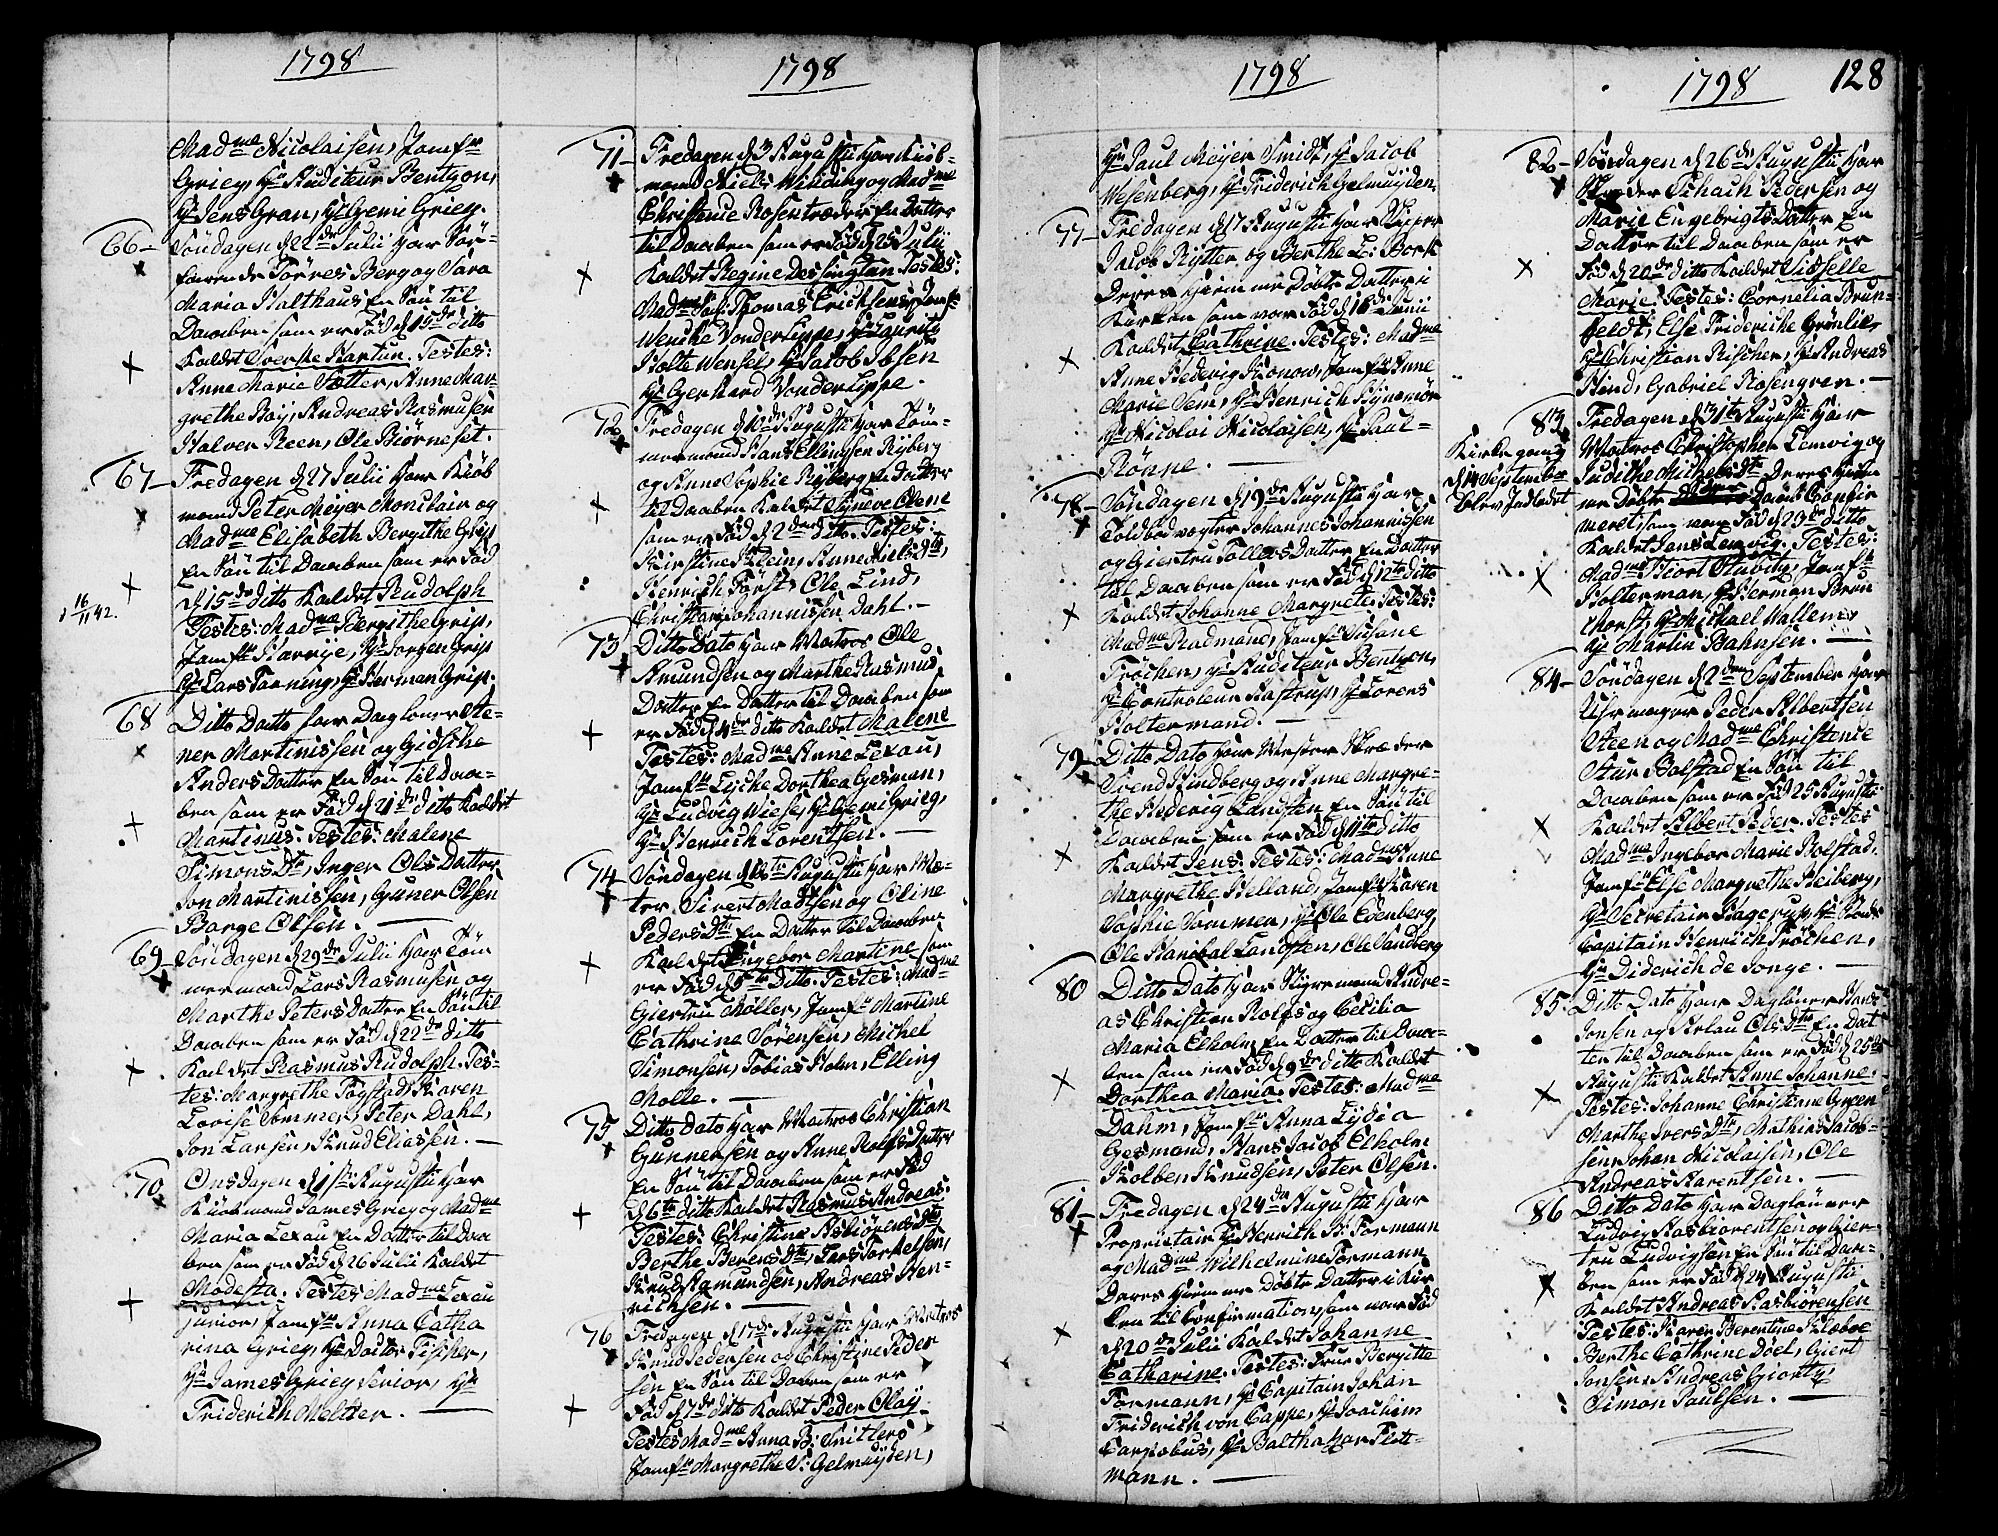 1798
Madme Nicolaisen, Jomfr
Grieg, Hr Auditeur Bentzon,
Hr Jens Gran, Hr Gemi Grieg.
66 Søndagen d 22de Julii har Sø-
farende Torres Berg og Sara
Maria Holthaus En Søn til
Daaben som er Fød d 15de ditto
Kaldet Sverke Martin. Testes:
Anne Marie Sotter, Anne Mar-
grethe Boy, Andreas Rasmusen
Halver Reen, Ole Biørneset.
67 Fredagen d 27 Julii har Kiøb
mand Peter Meyer Monclair og
Madme Elisabeth Bergithe Grip
En Søn til Daaben som er Fød
d 15de ditto Kaldet Rudolph
Testes: Madme Bergithe Grip,
Jomfr Harrije, Hr Jørgen Grip
Hr Lars Torning, Hr Herman Grip.
1 16/11 42.
68 Ditto Datto har Dagløner Ste-
ner Martinissen og Gidsche
Anders Datter En Søn til Daa-
ben som er Fød d 21de ditto Kaldet
Martinus: Testes: Malene
Simons Dr, Inger Ols Datter
Jon Martinissen, Guner Olsen
Barge Olsen.
69 Søndagen d 29de Julii har Tøm
mermand Lars Rasmusen og
Marthe Peters Datter En Søn til
Daaben som er Fød d 22de ditto
Kaldet Rasmus Rudolph. Tes-
tes: Margrethe Fogstad, Karen
Lovise Sommer, Peter Dahl,
Jon Larsen, Knud Eliassen.
70 Onsdagen d 1ste Augusti har
Kiøbmand James Grieg og Madme
Maria Lexau En Datter til Daa
ben som er Fød d 26 Julii Kaldet
Modesta. Testes Madme Lexau
junior, Jomfr Anna Catha
rina Grieg, Hr Doctor Fischer,
Hr James Grieg Senior, Hr
Friderich Meltzer.
1798
71 Fredagen d 3 Augusti har Kiøb-
mand Niels Winding og Madme
Christence Rosentræder En Datter
til Daaben som er Fød d 25 Julii
Kaldet Regine Dessington Testes:
Madme Sal: Thomas Erichsens, Jomfr
Wencke Vonder Lippe, Hr Capit:
Holte Wensel, Hr Jacob Ibsen
Hr Gerhard Vonder Lippe.
72 Fredagen d 10de Augusti har Tøm-
mermand Hans Ellingsen Ryberg
og Anne Sophie Ryberg En Datter
til Daaben Kaldet Synneve Olene
som er Fød d 2den ditto. Testes:
Kirstine Klein, Anne Niels Dtr,
Henrich Først, Ole Lind,
Christian Johannissen Dahl.
73 Ditto Dato har Matros Ole
Amundsen og Marthe Rasmus
Datter En Datter til Daaben som
er Fød d 4de ditto Kaldet Malene
Testes: Madme Anne Lexau,
Jomfr Lyche Dorthea Gesman,
Hr Ludvig Wiese, Hr Gemi Grieg,
Hr Henrich Lorentsen.
74 Søndagen d 12te Augusti har Ma-
ter Sivert Madsen og Oline
Peders Dtr En Datter til Daaben
Kaldet Ingebor Martine som
er Fød d 5te Ditto. Testes: Madme
Giertru Møller, Jomfr Martine
Cathrine Sørensen, Michel
Simonsen, Tobias Holm, Elling
Molle.
75 Ditto Dato har Matros Christian
Gunnersen og Anne Rolfs Datter
En Søn til Daaben som er Fød
d 6te ditto Kaldet Rasmus Andreas:
Testes: Christine Asbiørens Dtr
Berthe Berens Dtr, Lars Torkelsen,
Knud Asmundsen, Andreas Hen-
richsen.
76 Fredagen d 17de Augusti har Matros
Knud Pedersen og Christine Peder
sen En Søn til Daaben som er
Fød d 7de ditto Kaldet Peder Olay
Testes Madme Anna B: Snitlers
Jomfr Margrethe S: Gelmuyden,
1798
Hr Paul Meyer Smidt, Hr Jacob
Wesenberg, Hr Friderich Gelmuyden.
77 Fredagen d 17 Augusti har Skipper
Jacob Rytter og Berthe L: Bork
Deres hiemme Døbte Datter i
Kirken som var Fød d 16 Junii
Kaldet Cathrine. Testes: Madme
Anne Hedevig Konow, Jomfr Anne
Marie Sem, Hr Henrich Bynemør
Hr Nicolai Nicolaisen, Hr Paul
Rønne.
78 Søndagen d 19de Augusti har
Toldbod vogter Johannes Johannissen
og Giertru Tollers Datter En Datter
til Daaben som er Fød d 12te ditto
Kaldet Johanne Margrete. Testes:
Madme Radmand, Jomfr Susane
Trøchen, Hr Auditeur Bentzon,
Hr Controleur Kastrup, Hr Lorens
Holtermand.
79 Ditto Dato har Mester Skræder
Svend Sindberg og Anne Margre-
the Hedevig Landsten En Søn til
Daaben som er Fød d 11te ditto
Kaldet Jens: Testes: Madme Anne
Margrethe Helland, Jomfr Karen
Sophie Sommer, Hr Ole Edenberg
Ole Hanibal Landsten, Ole Sandberg
80 Ditto Dato har Stigermand Andre-
as Christian Rolfs og Cecilia
Maria Elholm En Datter til Daa-
ben som er Fød d 9de ditto Kaldet
Dorthea Maria. Testes: Madme
Dahm, Jomfr Anna Lydia
Gesmand, Hans Jacob Elholm
Kolben Knudsen, Peter Olsen.
81 Fredagen d 24de Augusti har
Proprietair J: Henrich B: Formann
og Madme Wilhelmine Formann
Deres hiemme Døbte Datter i Kir
ken til Confirmation som var Fød
d 20de Julii Kaldet Johanne
Catharine. Testes: Frue Bergitte
Formann, Hr Capitain Johan
Friderich von Cappe, Hr Joachim
Carpobus, Hr Balthazar Fleit-
mann.
1798 128
82 Søndagen d 26de Augusti har
Skræder Schach Pedersen og
Marie Engebrigts Datter En
Datter til Daaben som er
Fød d 20de ditto Kaldet Sidselle
Marie. Testes: Cornelia Brun-
feldt, Else Friderike Grønlie,
Hr Christian Rischer, Hr Andreas
Hind, Gabriel Rosengren.
83 Fredagen d 31te Augusti har
Matros Christopher Lemvig og
Judithe Michels Dtr Deres hiem
me Døbte Daab Confir
meret, som var Fød d 23de ditto
Kaldet Jens Lemvig. Testes:
Madme Hiort Stuvitz, Jomfr
Holterman, Hr Herman Brun
Morst, Hr Michael Wallem,
Hr Martin Bahnsen.
Kirkegang
d 14 Septembr
blev Indledet
84 Søndagen d 2den September har
Uhrmager Peder Albertsen
Steen og Madme Christence
Stur Bolstad En Søn til
Daaben som er Fød 25 Augusti
Kaldet Albert Peder. Testes
Madme Ingebor Marie Bolstad,
Jomfr Else Margrethe Heiberg,
Hr Secretair Hagerup, Hr Stads
Capitain Henrich Trøchen,
Hr Diderich de Jonge.
85 Ditto Dato har Dagløner Hans
Jonsen og Aslau Ols Dtr En Dat
ter til Daaben som er Fød d 25de
Augusti Kaldet Anne Johanne.
Testes: Johanne Christine Green
Marthe Ivers Dtr, Mathias Jacob-
sen, Johan Nicolaisen, Ole
Andreas Barentsen.
86 Ditto Dato har Dagløner
Ludvig Asbiørentsen og Gier-
tru Ludvigsen En Søn til Daa-
ben som er Fød d 24 Augusti
Kaldet Andreas Asbiørensen
Testes: Karen Berentine Klæboe
Berthe Cathrine Doet, Giert
Jonsen, Andreas Giortz,
Simon Paulsen.